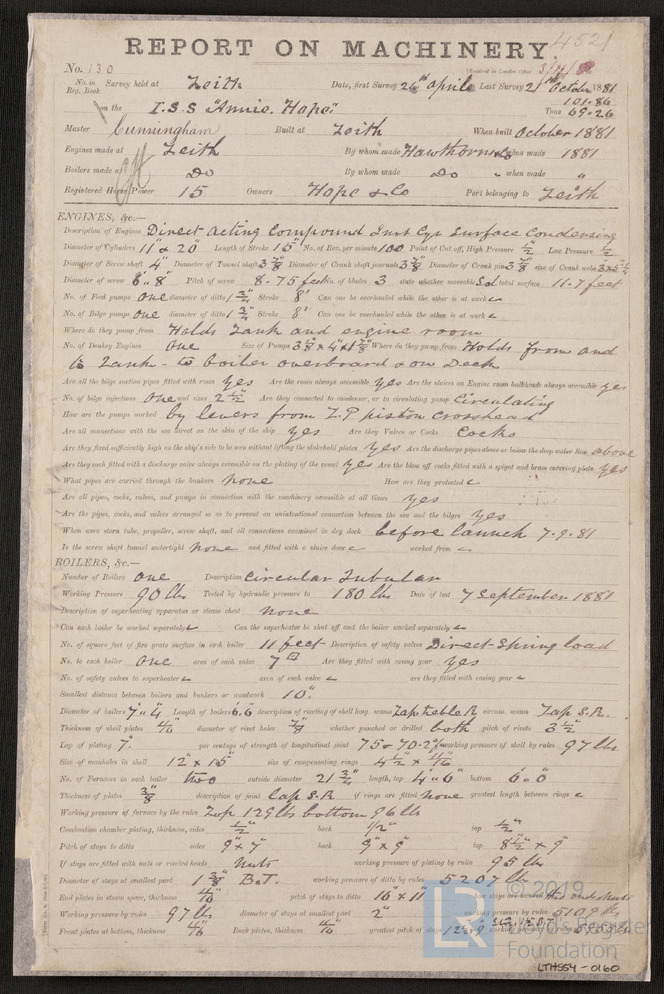 4521
REPORT ON MACHINERY
No. 130
No. in Reg. Book. Survey held at Leith Date, first Survey 26th April Last Survey 21st October 1881
on the I.S.S "Annie Hope" Tons 101.86 69.26
Master Cunningham Built at Leith When built October 1881
Engines made at Leith By whom made Hawthorns & Co when made 1881
Boilers made at Do By whom made Do when made "
Registered Horse Power 15 Owners Hope & Co Port belonging to Leith
ENGINES, &c.—
Description of Engines Direct Acting Compound Invt Cyr Surface Condensing
Diameter of Cylinders 11" & 20" Length of Stroke 15" No. of Rev. per minute 100 Point of Cut off, High Pressure 1/2 Low Pressure 1/2
Diameter of Screw shaft 4" Diameter of Tunnel shaft 3 7/8 Diameter of Crank shaft journals 3 7/8 Diameter of Crank pin 3 7/8 size of Crank webs
Diameter of screw 6'.8" Pitch of screw 8.75 feet No. of blades 3 state whether moveable Sd total surface 11.7 feet
No. of Feed pumps one diameter of ditto 1 3/4 Stroke 8" Can one be overhauled while the other is at work
No. of Bilge pumps one diameter of ditto 1 3/4 Stroke 8" Can one be overhauled while the other is at work
Where do they pump from Holds Tank and engine room
No. of Donkey Engines One Size of Pumps Where do they pump from Holds from and
to Tank - to boiler overboard & on Deck
Are all the bilge suction pipes fitted with roses yes Are the roses always accessible yes Are the sluices on Engine room bulkheads always accessible yes
No. of bilge injections one and sizes 2 1/2 Are they connected to condenser, or to circulating pump Circulating
How are the pumps worked by levers from L.P piston crosshead
Are all connections with the sea direct on the skin of the ship yes Are they Valves or Cocks Cocks
Are they fixed sufficiently high on the ship's side to be seen without lifting the stokehold plates yes Are the discharge pipes above or below the deep water line above
Are they each fitted with a discharge valve always accessible on the plating of the vessel yes Are the blow off cocks fitted with a spigot and brass covering plate yes
What pipes are carried through the bunkers none How are they protected
Are all pipes, cocks, valves, and pumps in connection with the machinery accessible at all times yes
Are the pipes, cocks, and valves arranged so as to prevent an unintentional connection between the sea and the bilges yes
When were stern tube, propeller, screw shaft, and all connections examined in dry dock before launch 7.9.81
Is the screw shaft tunnel watertight none and fitted with a sluice door worked from
BOILERS, &c.—
Number of Boilers one Description Circular Tubular
Working Pressure 90 lbs Tested by hydraulic pressure to 180 lbs Date of test 7 September 1881
Description of superheating apparatus or steam chest none
Can each boiler be worked separately Can the superheater be shut off and the boiler worked separately
No. of square feet of fire grate surface in each boiler 11 feet Description of safety valves Direct Spring load
No. to each boiler one area of each valve 7 Are they fitted with easing gear yes
No. of safety valves to superheater area of each valve are they fitted with easing gear
Smallest distance between boilers and bunkers or woodwork 10"
Diameter of boilers 7'.4 Length of boilers 6'.6 description of riveting of shell long. seams Lap treble R circum. seams Lap S.R.
Thickness of shell plates diameter of rivet holes 7/8 whether punched or drilled both pitch of rivets 3 1/2
Lap of plating 7" per centage of strength of longitudinal joint 75 & 70.2% working pressure of shell by rules 97 lbs
Size of manholes in shell 12" x 15" size of compensating rings 4 1/2 x 11/16
No. of Furnaces in each boiler two outside diameter 21 3/4 length, top 4'.6" bottom 6'.0"
Thickness of plates 3/8 description of joint Lap S.R if rings are fitted none greatest length between rings
Working pressure of furnace by the rules Top 129 lbs bottom 96 lbs
Combustion chamber plating, thickness, sides 1/2" back 1/2" top 1/2"
Pitch of stays to ditto sides 9" x 9" back 9" x 9" top 8 1/2" x 9"
If stays are fitted with nuts or riveted heads Nuts working pressure of plating by rules 95 lbs
Diameter of stays at smallest part 1 3/8 working pressure of ditto by rules 5207 lbs
End plates in steam space, thickness 11/16 pitch of stays to ditto 16" x 11"
Working pressure by rules 97 lbs diameter of stays at smallest part 2" working pressure by rules
Front plates at bottom, thickness 11/16 Back plates, thickness 11/16 greatest pitch of stays
© 2019
LR
Lloyd's Register
Foundation
LTHS54-0160